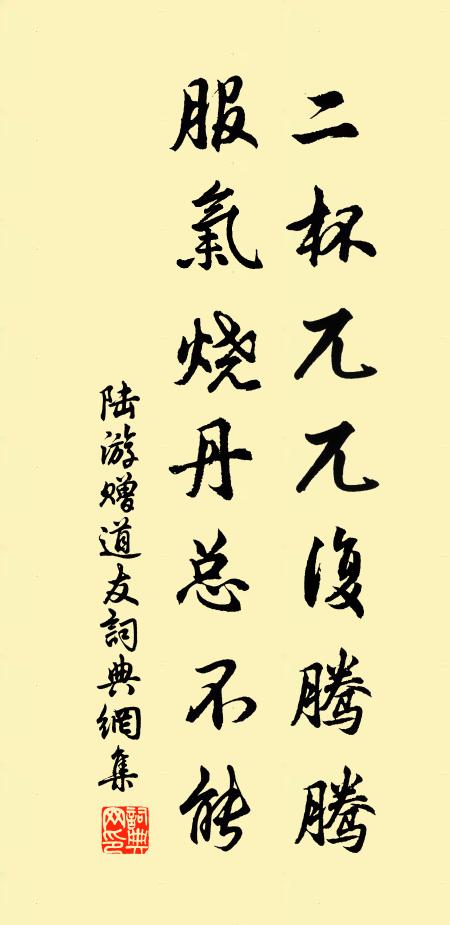 二杯兀兀復騰騰
服氣烧丹总不能
陆游赠道友詞典網集
詞典网印